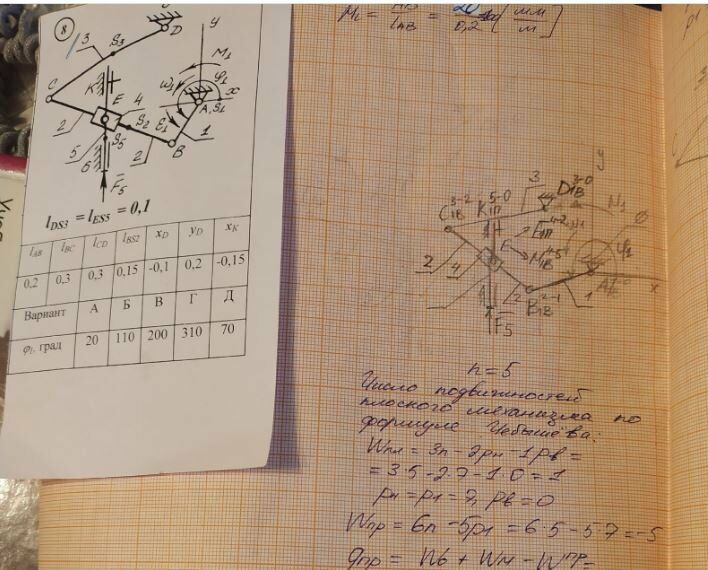 8
3
S3
D
y
M1
ω1
φ1
x
A, S1
C
K
E
4
S2
2
5
S5
6
ε1
B
1
2
F5
lDS3 = lES5 = 0,1
lAB lBC lCD lBS2 xD yD xK
0,2 0,3 0,3 0,15 -0,1 0,2 -0,15
Вариант А Б В Г Д
φ1, град 20 110 200 310 70
y
3-0
3
D1B
3-2
5-0
C1B
K1П
E1П
E
2
4
φ1
1
x
2-1
B1B
2
F5
n=5
Число подвижностей
плоского механизма по
формуле Чебышёва:
Wпл = 3n - 2pн - 1pв =
= 3·5 - 2·7 - 1·0 = 1
pн = p1 = 7, pв = 0
Wпр = 6n - 5p1 = 6·5 - 5·7 = -5
qпр = W6 + WM - Wпр =